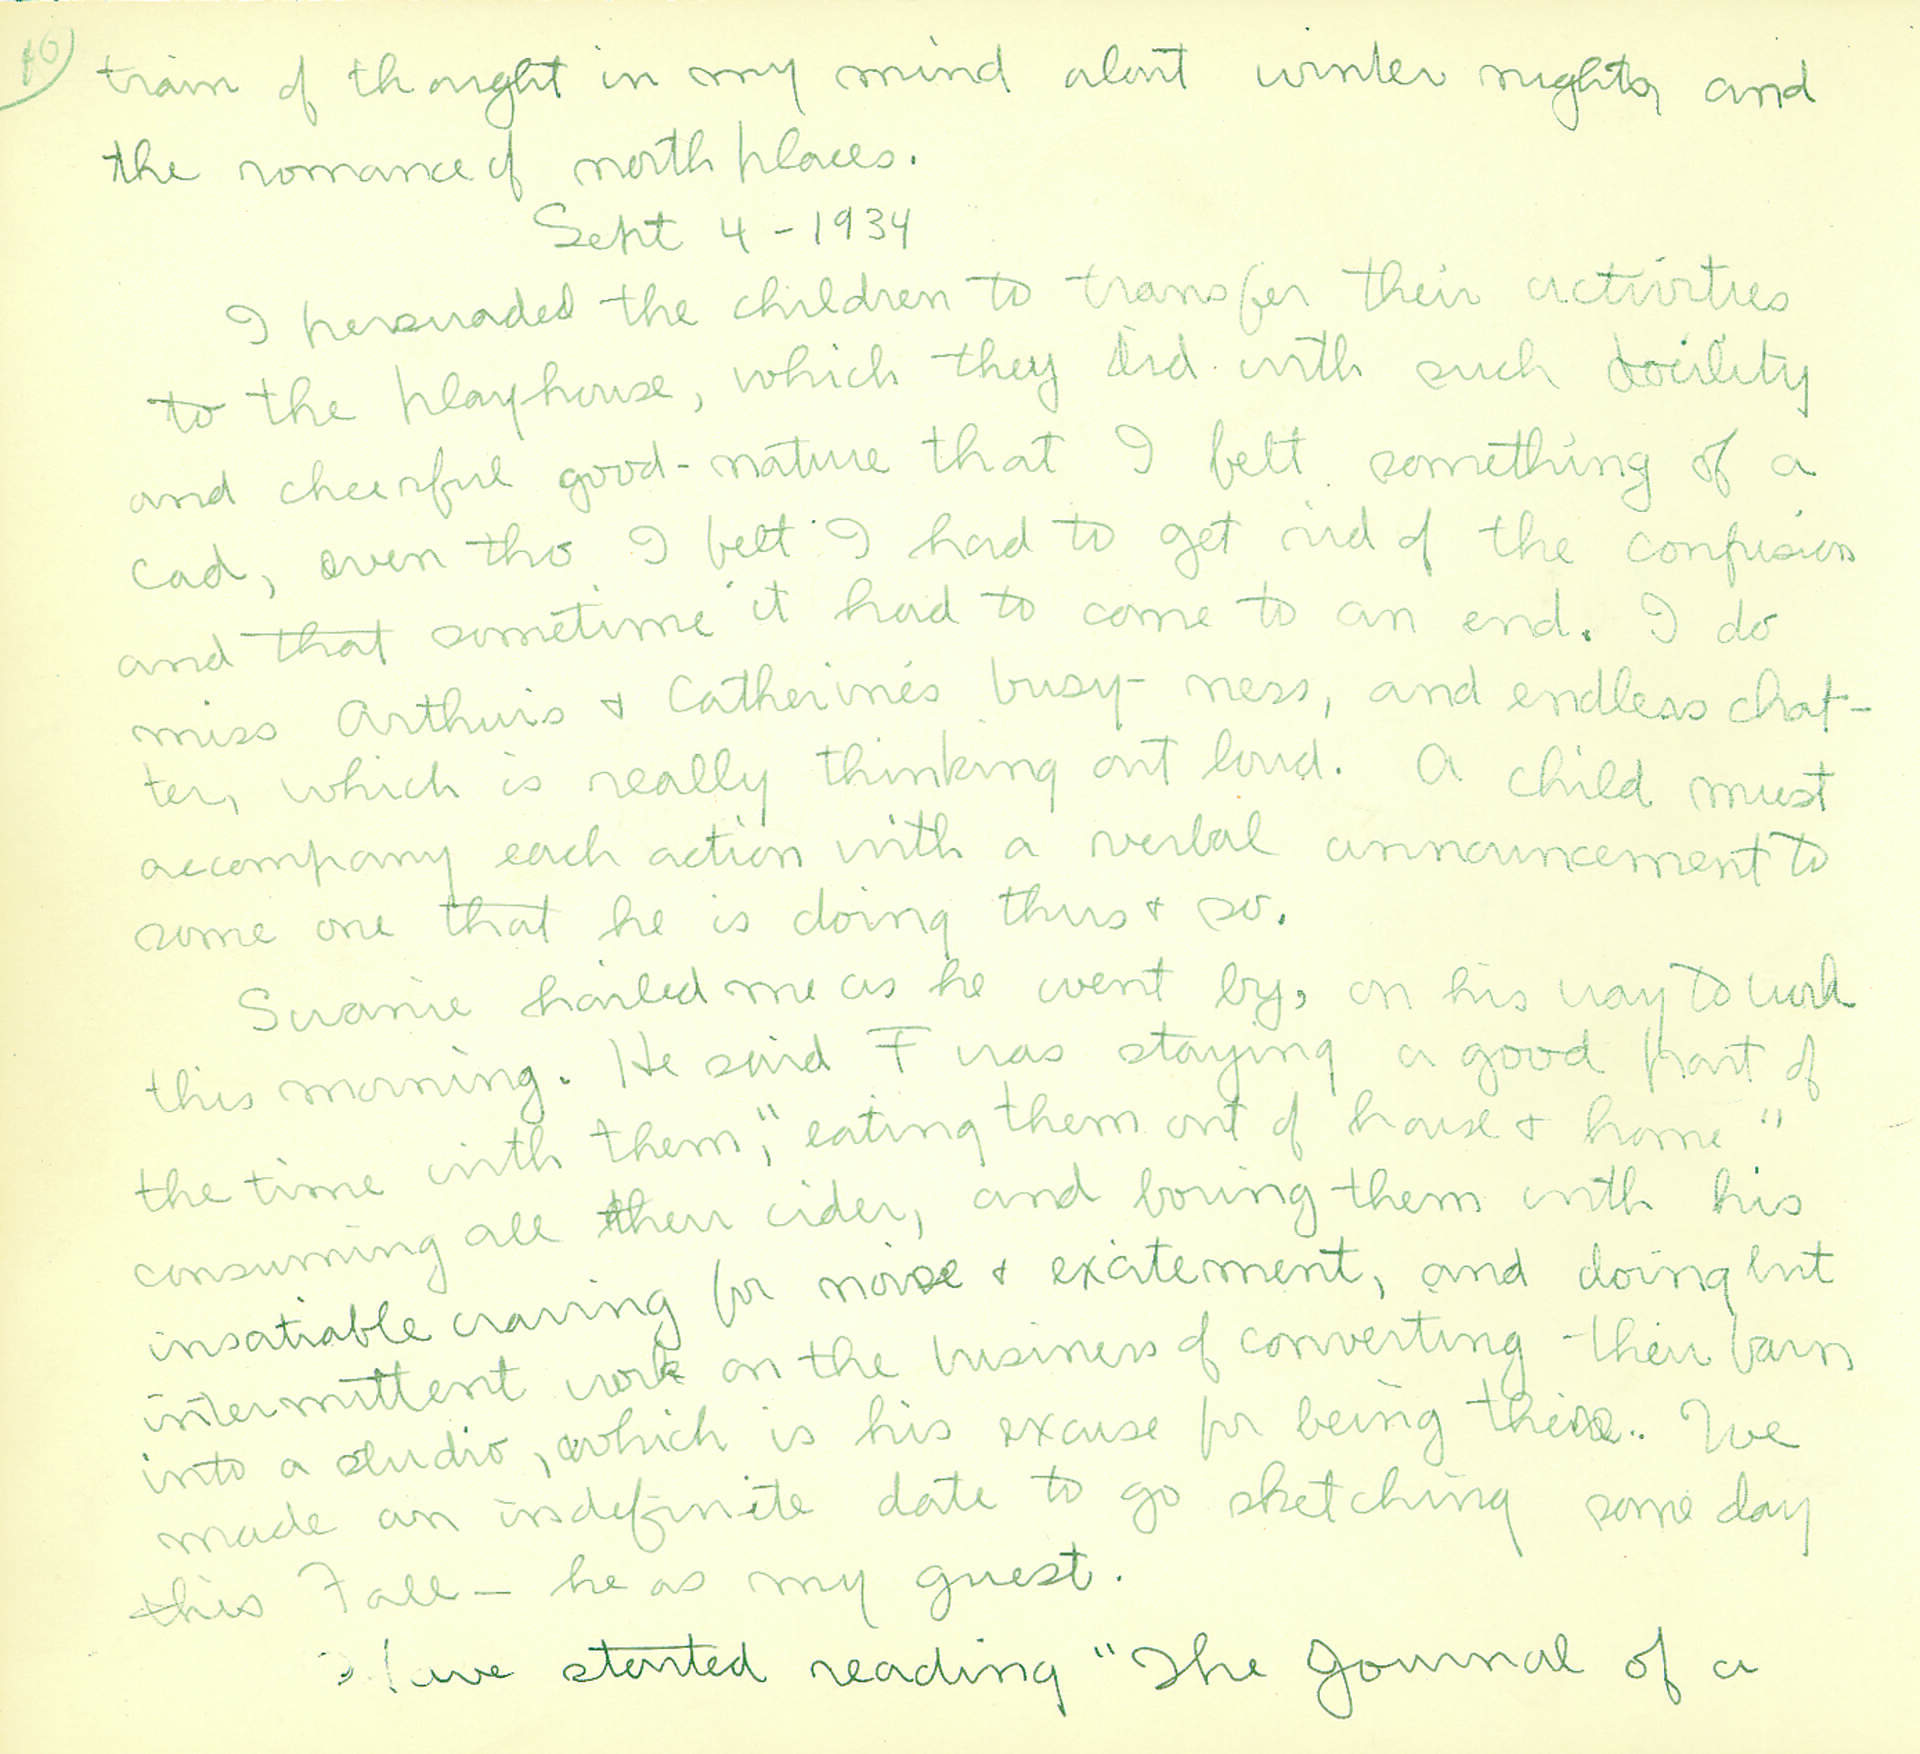 40
train of thought in my mind about winter nights, and
the romance of north places.
Sept 4 - 1934
I persuaded the children to transfer their activities
to the playhouse, which they did with such docility
and cheerful good-nature that I felt something of a
cad, even tho I felt I had to get rid of the confusion
and that sometime it had to come to an end. I do
miss Arthur's & Catherine's busy-ness, and endless chat-
ter, which is really thinking out loud. A child must
accompany each action with a verbal announcement to
some one that he is doing thus & so.
Swanie hailed me as he went by, on his way to work
this morning. He said F was staying a good part of
the time with them, "eating them out of house & home"
consuming all their cider, and boring them with his
insatiable craving for noise & excitement, and doing but
intermittent work on the business of converting their barn
into a studio, which is his excuse for being there. We
made an indefinite date to go sketching some day
this Fall — he as my guest.
I have started reading "The Journal of a